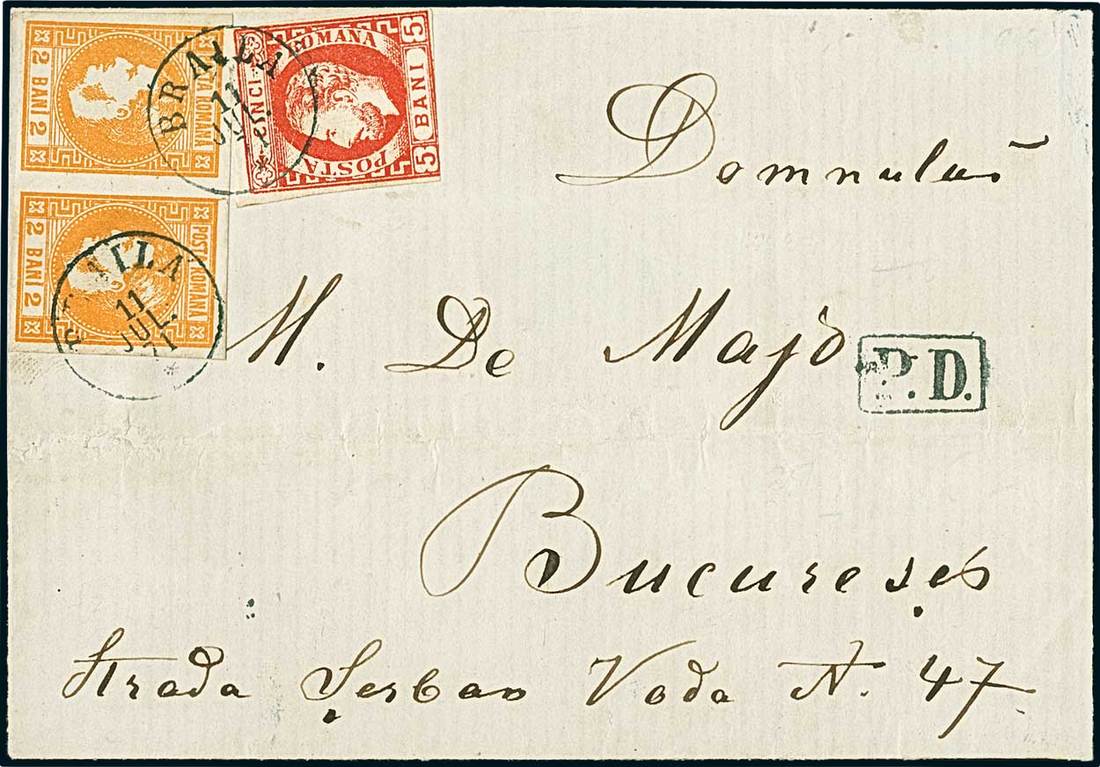 2 BANI 2
POSTA ROMANA
BRAILA
11
JUL.
71
CINCI
ROMANA
POSTA
5 BANI 5
2 BANI 2
POSTA ROMANA
BRAILA
11
JUL.
71
Domnului
M. De Majo
P.D.
Bucureşti
Strada Şerban Voda N. 47